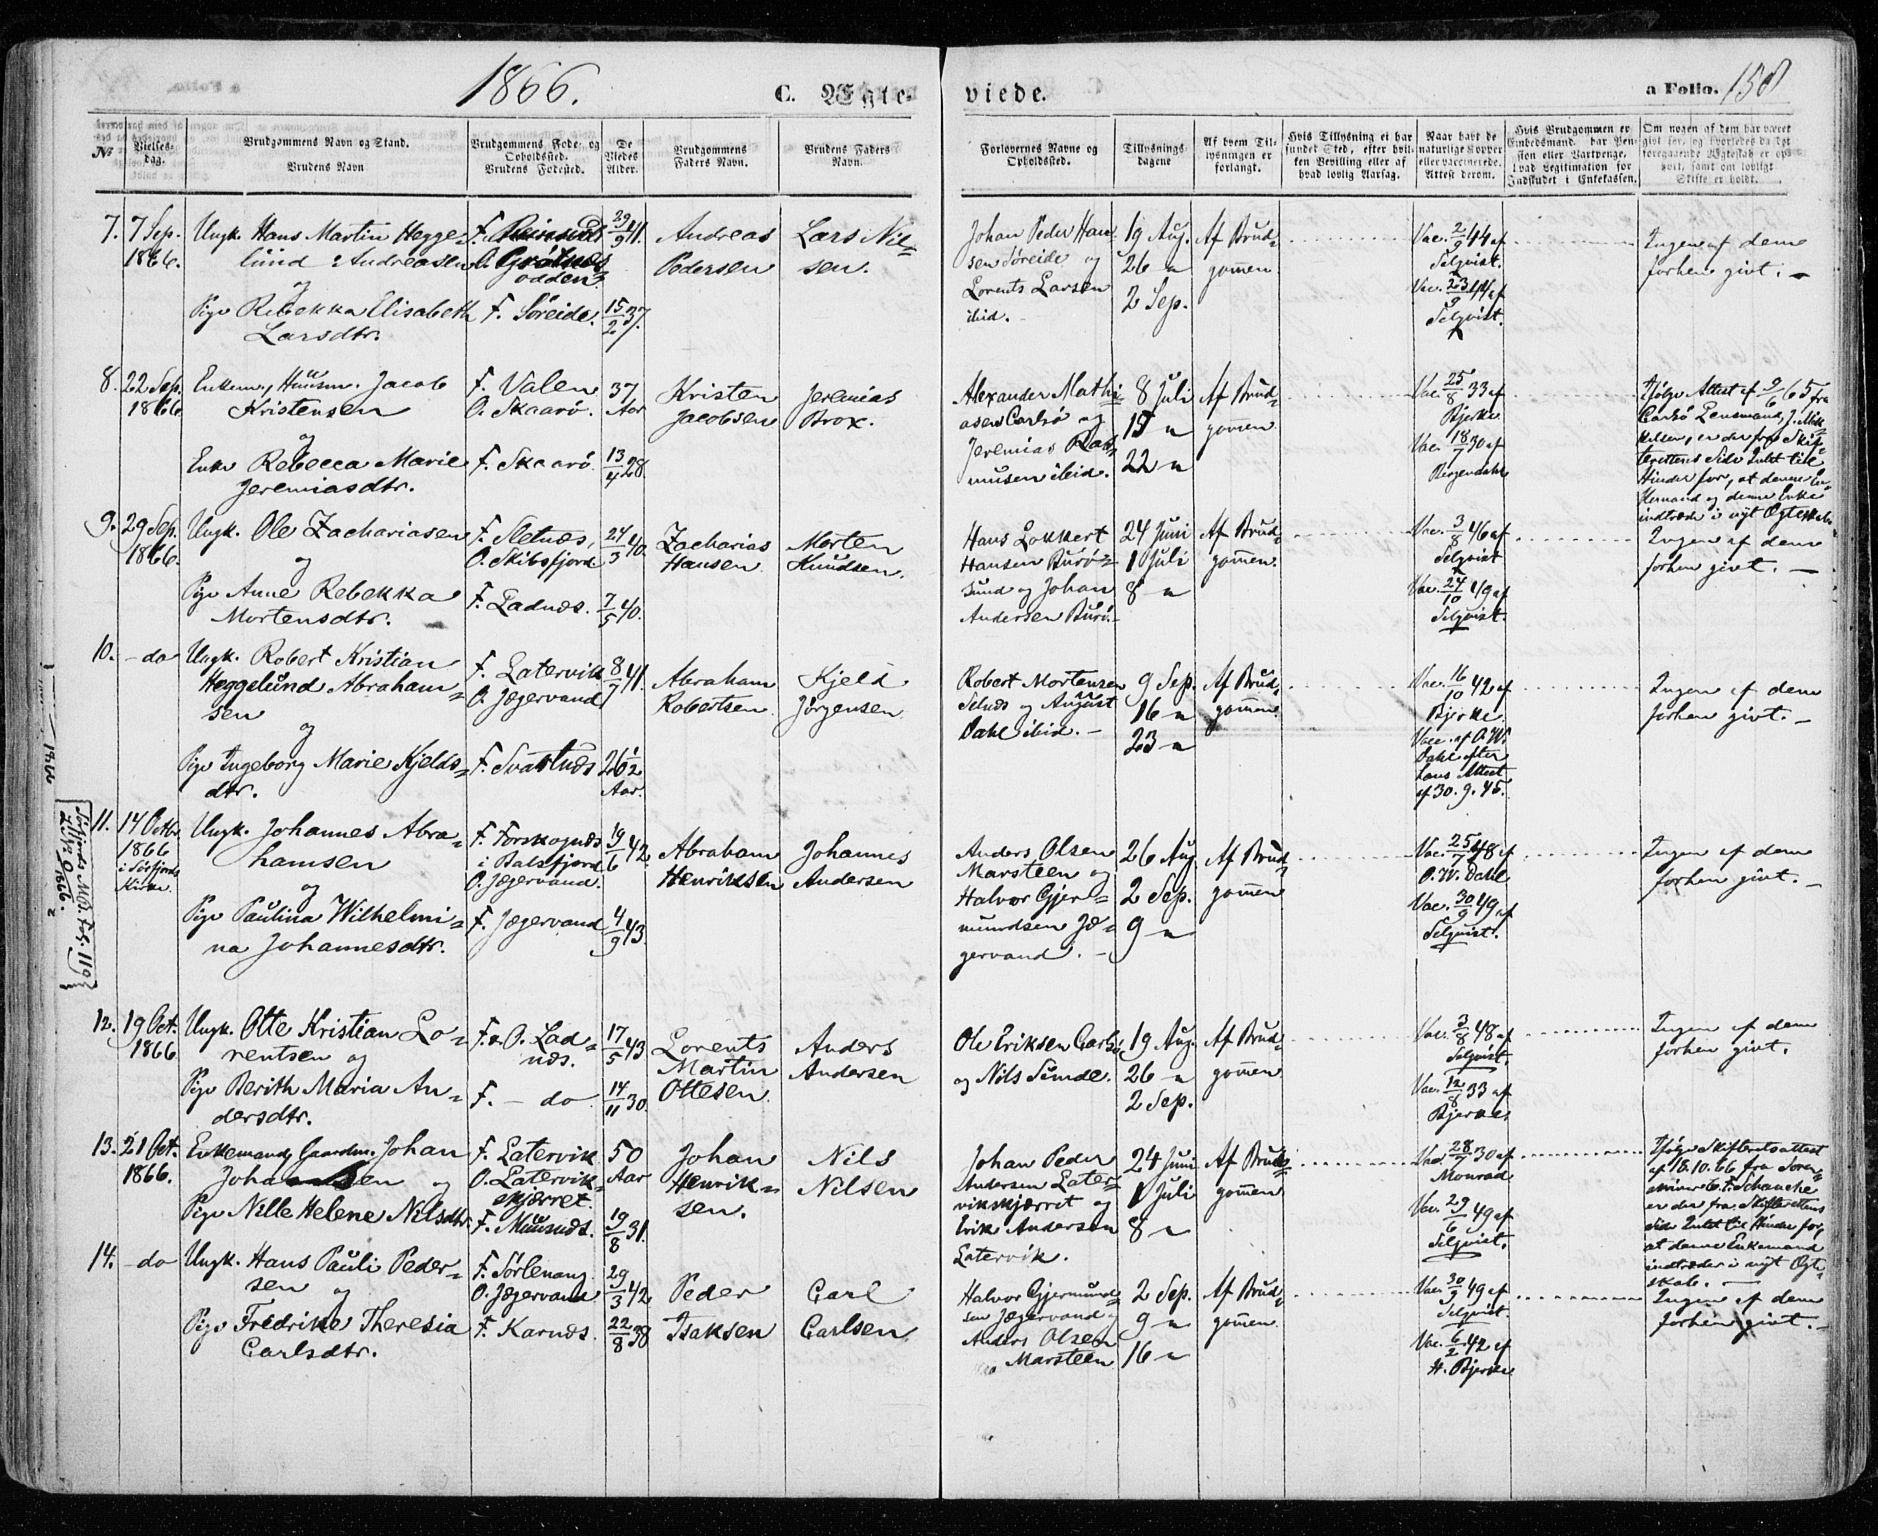 1866.
C. Ægte-
viede.
a Folio. 158
No
Vielses-
dag.
Brudgommens Navn og Stand.
Brudens Navn
Brudgommens Føde- og
Opholdssted.
Brudens Fødested.
De
Viedes
Alder.
Brudgommens
Faders Navn.
Brudens Faders
Navn.
Forlovernes Navne og
Opholdssted.
Tillysnings-
dagene
Af hvem Til-
lysningen er
forlangt.
Hvis Tillysning ei har
fundet Sted, efter hvil-
ken Bevilling eller af
hvad lovlig Aarsag.
Naar havt de
naturlige Kopper
eller vaccinerede.
Attest derom.
Hvis Brudgommen er
Embedsmand, har Pen-
sion eller Vartpenge,
hvad Legitimation for
Indskudet i Enkekassen.
Om nogen af dem har været
gift før, og hvorledes da det
foregaaende Ægteskab er op-
hørt, samt om lovligt
Skifte er holdt.
7. 7 Sep.
1866.
Ungk. Hans Martin Hegge-
lund Andreasen
og
Pige Rebekka Elisabeth
Larsdtr.
F. Reinsvold
O. Grötnes-
odden.
F. Söreide.
29/9 41.
15/2 37.
Andreas
Pedersen
Lars Nil-
sen.
Johan Peder Han-
sen Søreide og
Lorents Larsen
ibid.
19 Aug.
26 "
2 Sep.
Af Brud-
gommen
Vac. 2/9 44 af
Selqvist.
Vac. 23/9 44 af
Selqvist.
Ingen af dem
forhen givt.
8. 22 Sep.
1866
Enkem., Huusm. Jacob
Kristensen
og
Enke Rebecca Marie
Jeremiasdtr.
F. Valen
O. Skaarö.
F. Skaarö.
37
Aar
13/4 28
Kristen
Jacobsen
Jeremias
Brox.
Alexander Mathi-
asen Carlsö og
Jeremias Ras-
mussen ibid.
8 Juli
15 "
22 "
Af Brud-
gommen
Vac. 25/8 33 af
Bjerke
Vac. 18/7 30 af
Bergendahl
Ifølge Attest af 9/6 65 fra
Carlsö Lensmand, J. Mik-
kelsen, er der fra Skif-
terettens Side Intet til
Hinder for, at denne En-
kemand og denne Enke
indtræde i nyt Ægteskab.
9. 29 Sep.
1866.
Ungk. Ole Zachariasen
og
Pige Anne Rebekka
Mortensdtr.
F. Sletnæs,
O. Skibsfjord
F. Ladnæs.
24/3 40
7/5 40.
Zacharias
Hansen
Morten
Knudsen.
Hans Lokkert
Hansen Burö-
sund og Johan
Andersen Burö.
24 Juni
1 Juli
8 "
Af Brud-
gommen.
Vac. 3/8 46 af
Selqvist
Vac. 24/10 49 af
Selqvist.
Ingen af dem
forhen givt.
10. - do
Ungk. Robert Kristian
Heggelund Abraham-
sen
og
Pige Ingeborg Marie Kjelds-
dtr.
F. Latervik
O. Jægervand
F. Svartnæs
8/7 41.
26 1/2
Aar.
Abraham
Robertsen
Kjeld
Jörgensen
Robert Mortensen
Selnæs og August
Dahl ibid.
9 Sep.
16 "
23 "
Af Brud-
gommen
Vac. 16/10 42 af
Bjerke
Vacc. af O. W.
Dahl efter
hans Attest
af 30. 9. 45.
Ingen af dem
forhen givt.
11. 14 Octbr.
1866
i Sörfjords
Kirke.
Ungk. Johannes Abra-
hamsen
og
Pige Paulina Wilhelmi-
na Johannesdtr.
F. Forskognæs
i Balsfjord
O. Jægervand.
F. Jægervand
19/6 42
4/9 43.
Abraham
Henriksen
Johannes
Andersen
Anders Olsen
Marsteen og
Halvor Gjer-
mundsen Jæ-
gervand.
26 Aug.
2 Sep.
9 "
Af Brud-
gommen
Vac. 25/7 48 af
O. W. Dahl
Vac. 30/9 49 af
Selqvist.
Ingen af dem
forhen givt.
12. 19 Oct.
1866
Ungk. Otte Kristian Lo-
rentsen og
Pige Berith Maria An-
dersdtr.
F. & O. Lad-
næs.
F. - do
17/5 43
14/11 30.
Lorents
Martin
Ottesen
Anders
Andersen
Ole Eriksen Carlsö
og Nils Simde.
19 Aug.
26 "
2 Sep.
Af Brud-
gommen
Vac. 3/8 48 af
Selqvist.
Vac. 12/8 33 af
Bjerke.
Ingen af dem
forhen givt.
13. 21 Oct.
1866.
Enkemand, Gaardm. Johan
Johansen og
Pige Nille Helene Nilsdtr.
F. Latervik
O. Latervik-
skjærret.
F. Muusnæs.
50
Aar
19/8 31.
Johan
Henrik-
sen.
Nils
Nilsen
Johan Peder
Andersen Later-
vikskjærret og
Erik Andersen
Latervik.
24 Juni
1 Juli
8 "
Af Brud-
gommen
Vac. 28/7 30 af
Monrad
Vac. 29/6 49 af
Selqvist.
Ifølge Skifteretsattest
af 18.10.66 fra Soren-
skriver C. F. Schancke
er der fra Skifterettens
Side Intet til Hinder for,
at denne Enkemand
indtræder i nyt Ægte-
skab.
14. - do
Ungk. Hans Pauli Peder-
sen og
Pige Fredrike Theresia
Carlsdtr.
F. Sörlenang
O. Jægervand
F. Karnæs.
29/3 42
22/8 38
Peder
Isaksen
Carl
Carlsen
Halvor Gjermund-
sen Jægervand og
Anders Olsen
Marsteen
2 Sep.
9 "
16 "
Af Brud-
gommen
Vac. 30/9 49 af
Selqvist
Vac. 6/2 42 af
H. Bjerke
Ingen af dem
forhen givt.